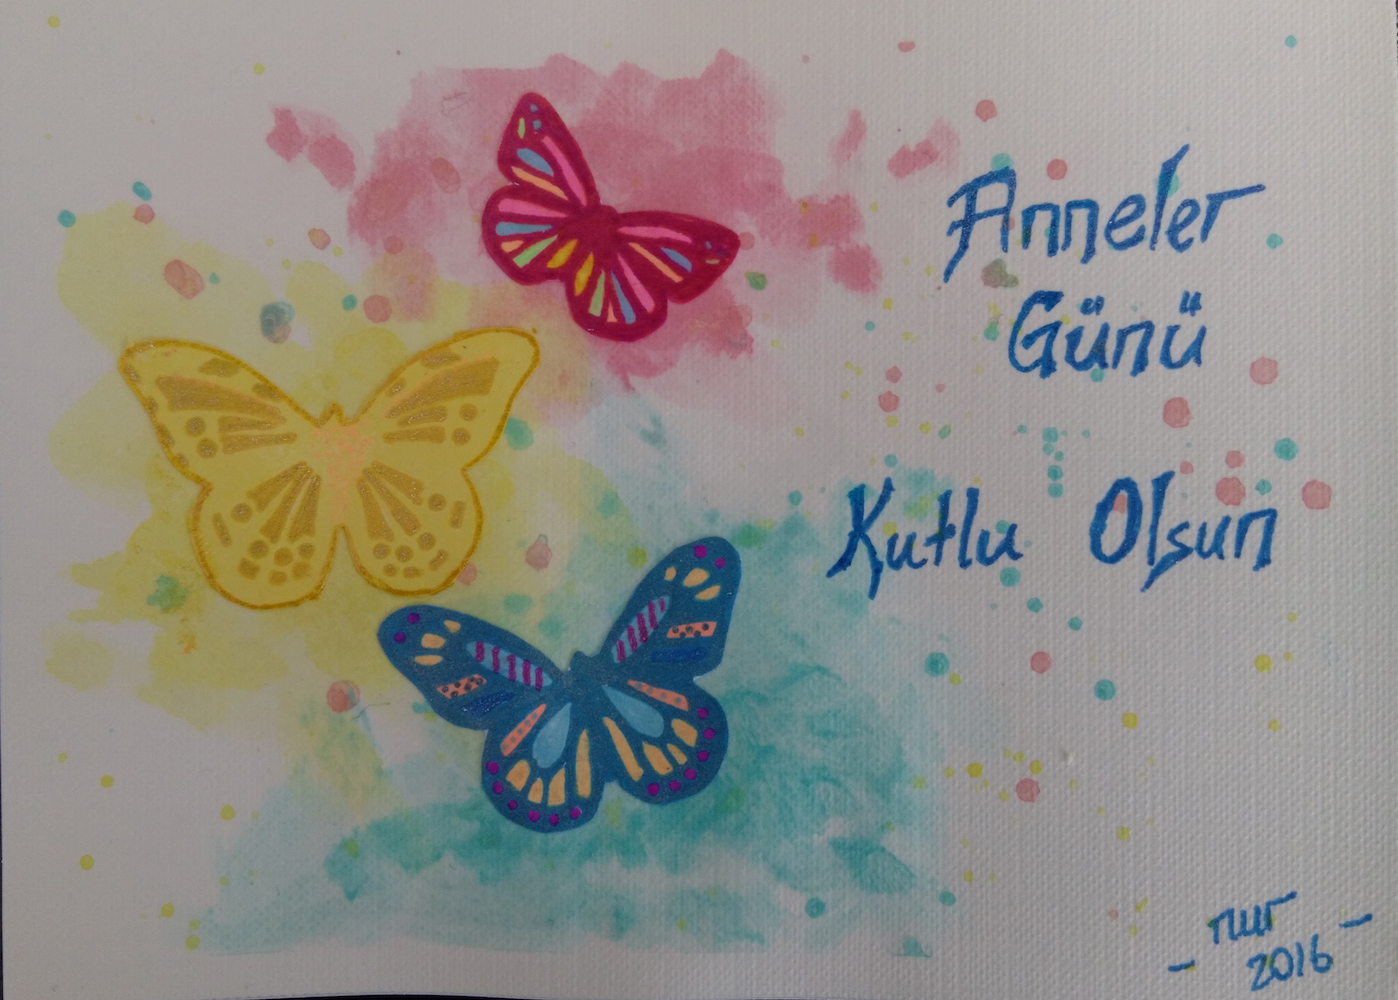 Anneler
Günü
Kutlu Olsun
- nur -
2016